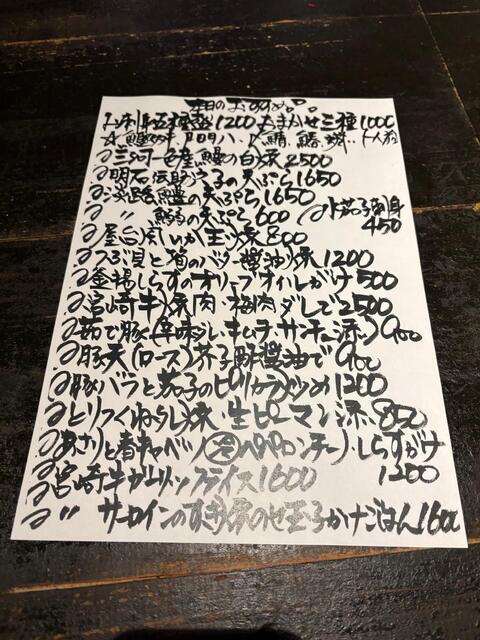 本日のおすすめ
お刺身五種盛1200 おまかせ三種1000
三河一色産鰻の白焼2500
明石 穴子の天ぷら1650
淡路 の天ぷら1650
〃 の天ぷら600 水茄子刺身
450
屋台風いか玉焼800
つぶ貝と筍のバター醤油焼1200
釜揚しらずのオリーブオイルがけ500
宮崎牛焼肉・梅肉ダレで2500
茹で豚(辛味ダレ・キムチ・サンチュ添)900
豚天(ロース)芥子酢醤油で900
豚バラと茄子のピリカラ炒め1200
とりつくねらし焼・生ピーマン添850
あさりと春キャベツ ペペロンチーノ・しらすがけ
1200
宮崎牛ガーリックライス1600
〃 サーロインのすき焼のせ玉子かけごはん1600